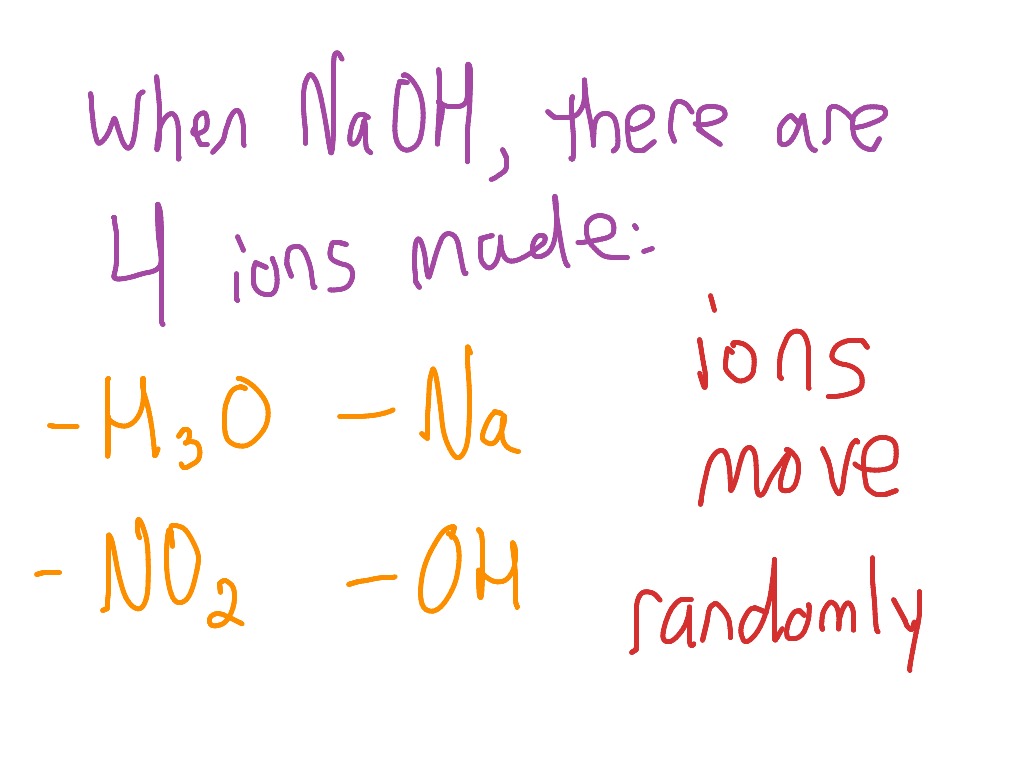 When NaOH, there are
4 ions made:
- H₃O - Na
- NO₂ - OH
ions
move
randomly